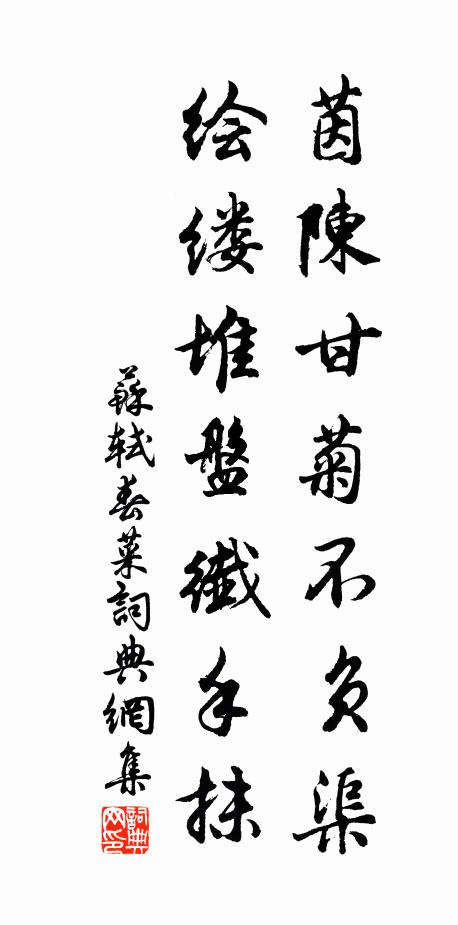 茵陳甘菊不负渠
绘缕堆盤纖手抹
蘇軾春菜詞典網集
詞典网印